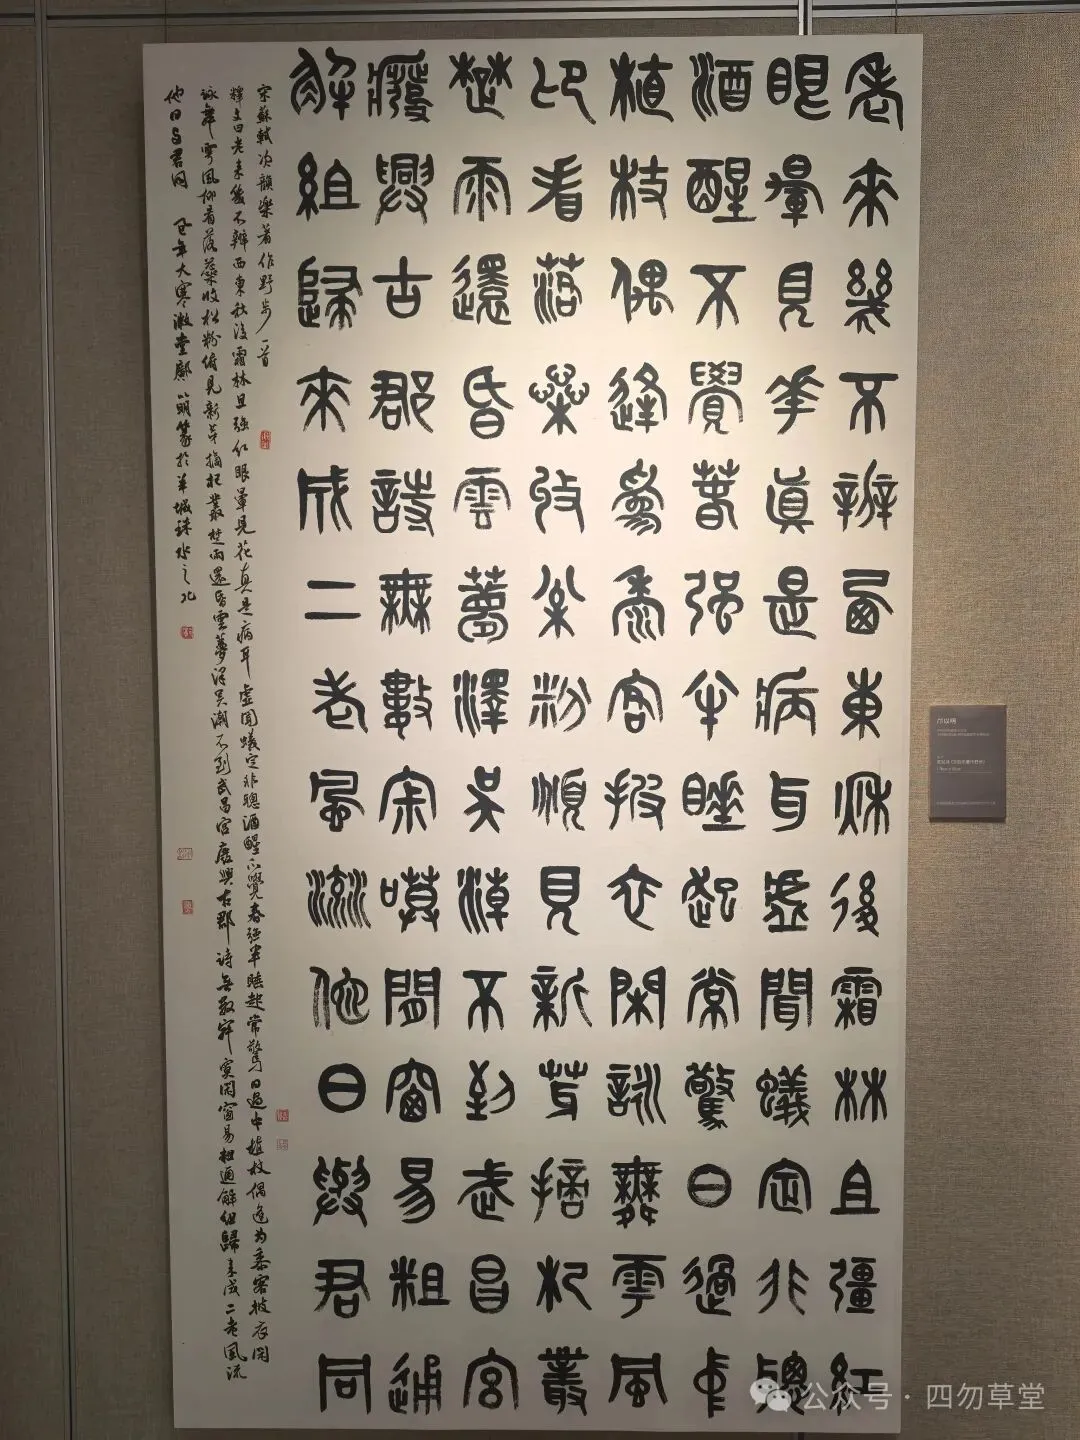 老來幾不辨西東秋後霜林且彊紅
眼暈見華真是病耳虛聞蟻定非聰
酒醒不覺春強半睡起常驚日過中
植枝偶逢為黍客披衣閑詠舞雩風
仰看落蘂收松粉俯見新芽摘杞叢
楚雨還昏雲夢澤吳潮不到武昌宮
廢興古郡詩無數寂寞閒窗易粗通
解組歸來成二老風流他日與君同
宋蘇軾次韻樂著作野步一首
釋文曰老來幾不辨西東秋後霜林且強紅眼暈見花真是病耳虛聞蟻定非聰酒醒不覺春強半睡起常驚日過中植枝偶逢為黍客披衣閑
詠舞雩風仰看落蘂收松粉俯見新芽摘杞叢楚雨還昏雲夢澤吳潮不到武昌宮廢興古郡詩無數寂寞閑窗易粗通解組歸來成二老風流
他日與君同 年大寒漱堂鄺以明篆於羊城珠水之北
公众号·四勿草堂